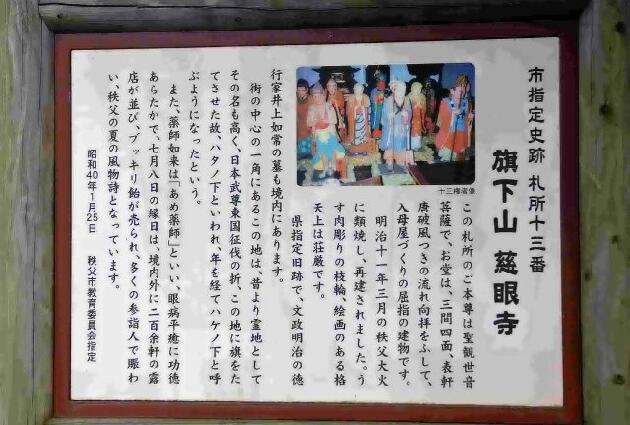 市指定史跡 札所十三番
旗下山 慈眼寺
この札所のご本尊は聖観世音
菩薩で、お堂は、三間四面、表軒
唐破風つきの流れ向拝をふして、
入母屋づくりの屈指の建物です。
明治十一年三月の秩父大火
に類焼し、再建されました。う
す肉彫りの枝輪、絵画のある格
天上は荘厳です。
県指定旧跡で、文政明治の徳
行家井上如常の墓も境内にあります。
街の中心の一角にあるこの地は、昔より霊地として
その名も高く、日本武尊東国征伐の折、この地に旗をた
てさせた故、ハタノ下といわれ、年を経てハケノ下と呼
ぶようになったという。
また、薬師如来は「あめ薬師」といい、眼病平癒に功徳
あらたかで、七月八日の縁日は、境内外に二百余軒の露
店が並び、ブッキリ飴が売られ、多くの参詣人で賑わ
い、秩父の夏の風物詩となっています。
昭和40年1月25日 秩父市教育委員会指定
十三権者像